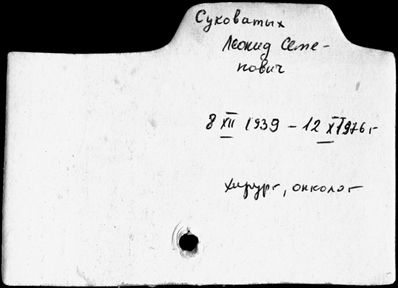 Суховатых
Леонид Семе-
нович
8 XII 1939 – 12 XI 1976 г
хирург, онколог